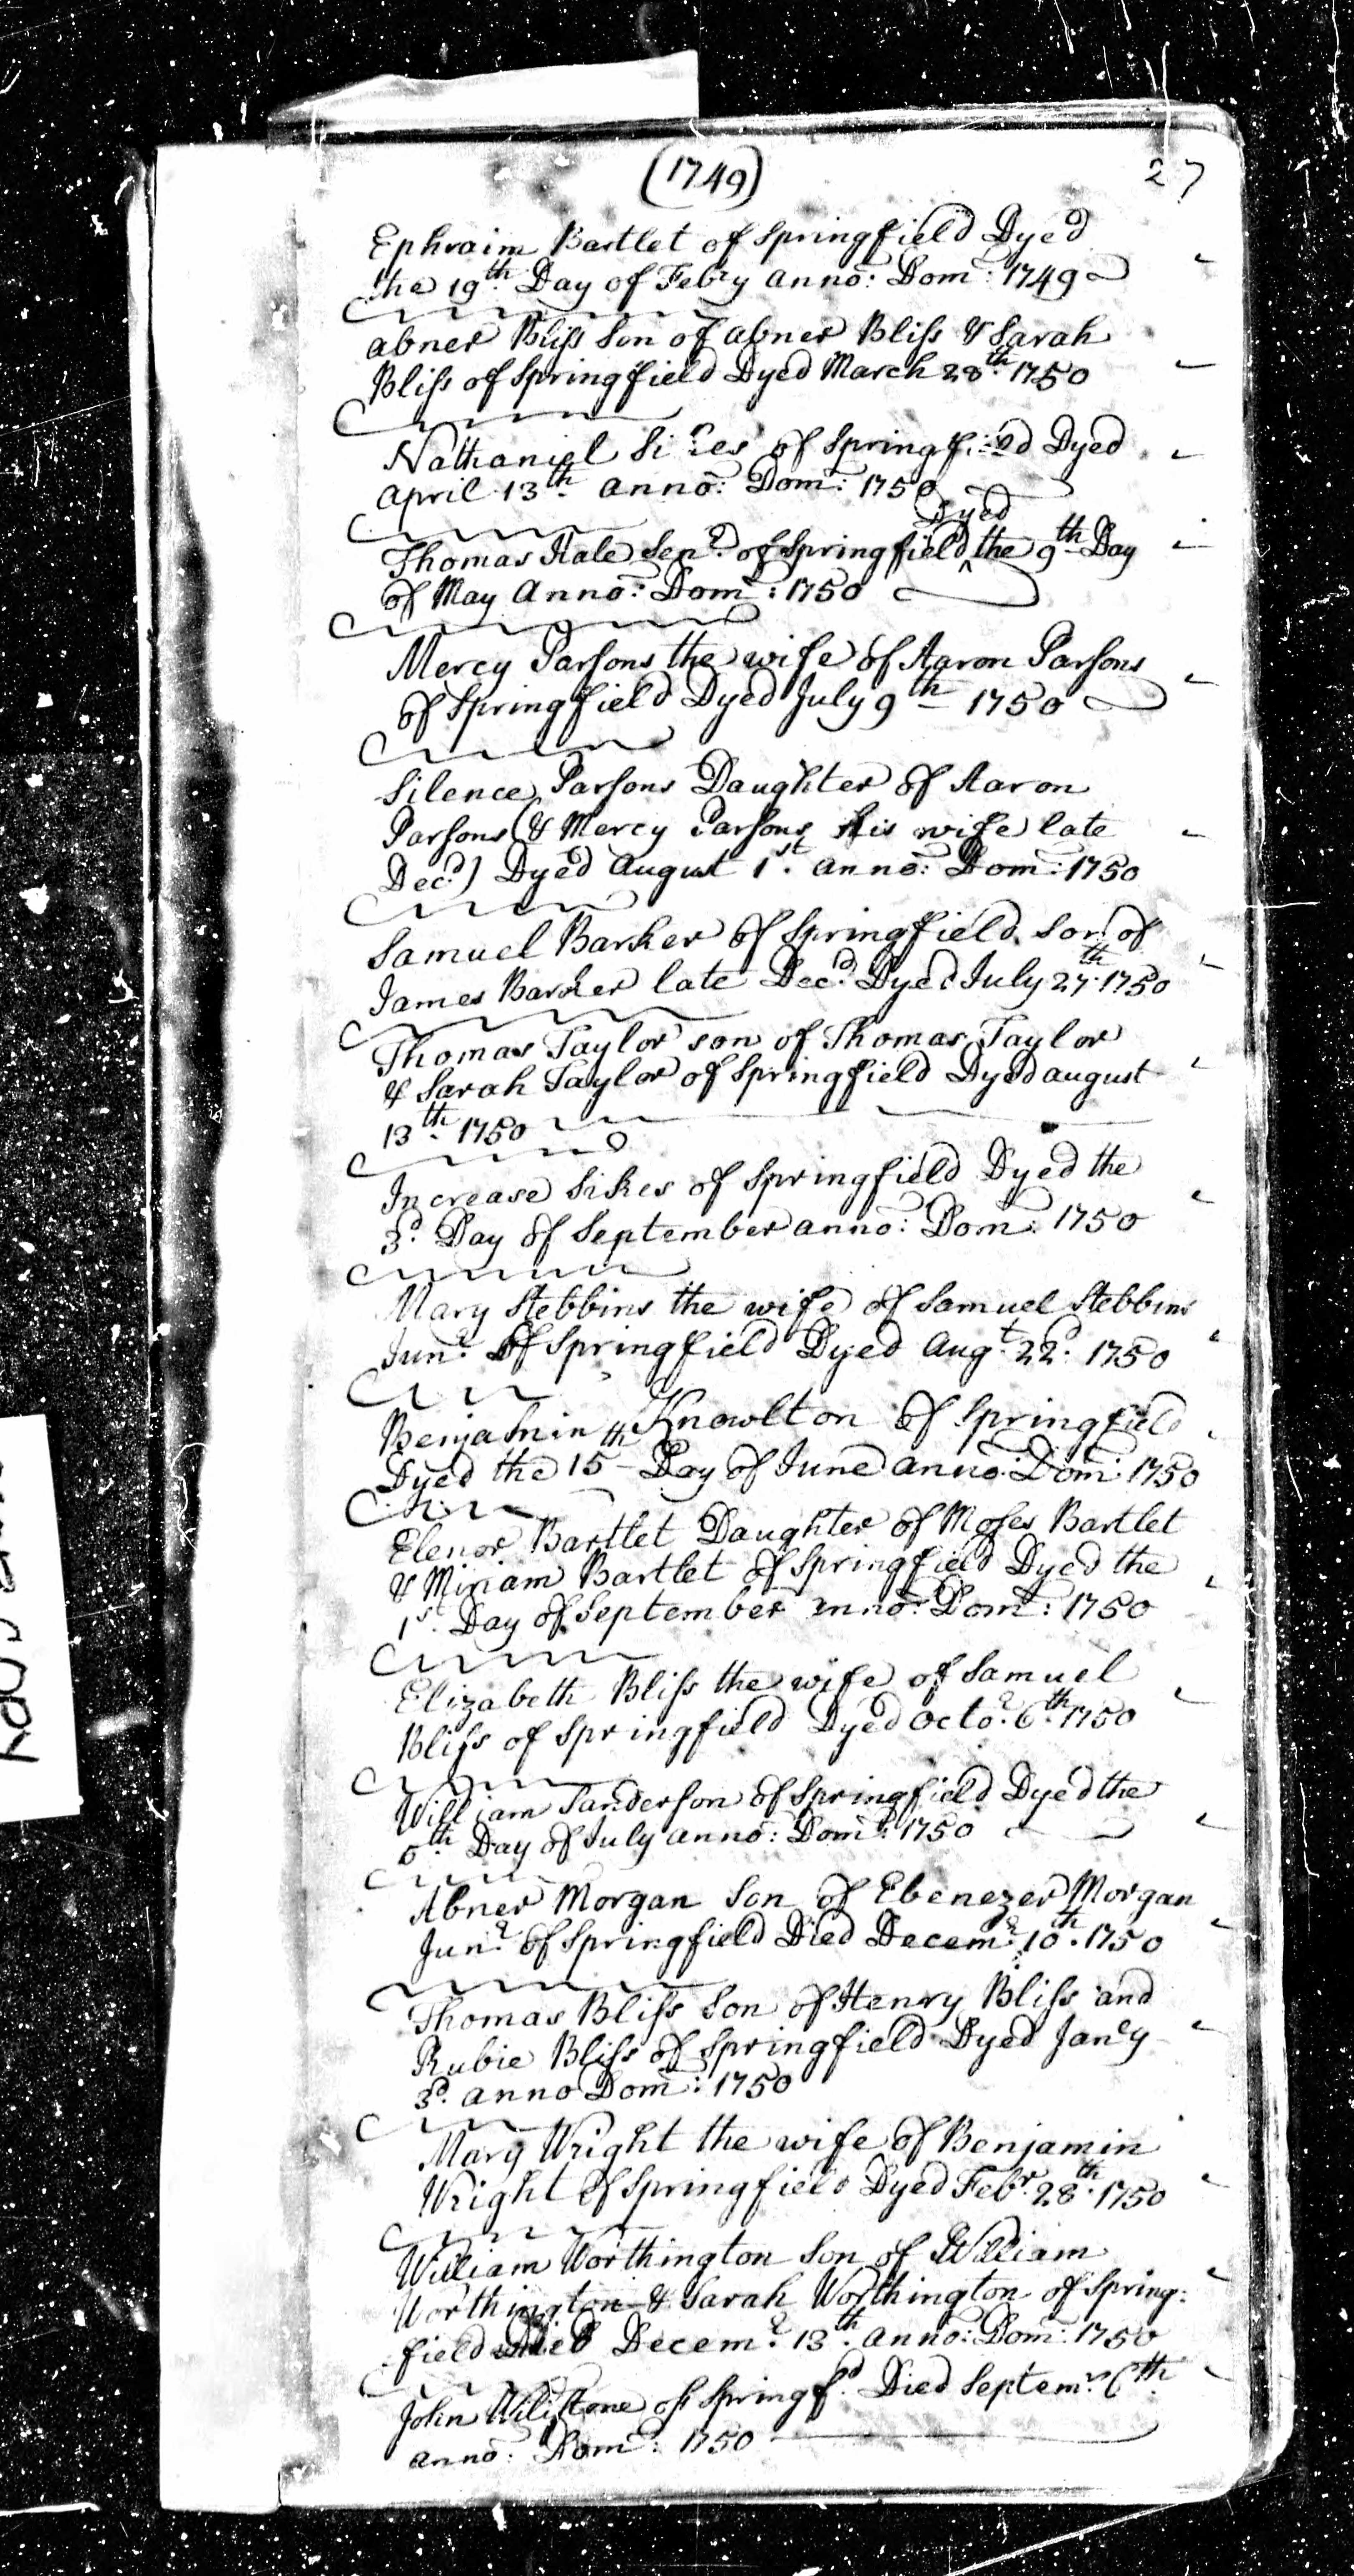 (1749)
27
Ephraim Bartlet of Springfield Dyed
the 19th Day of Febry anno: Dom: 1749
abner Bliss Son of abner Bliss & Sarah
Bliss of Springfield Dyed March 28th 1750
Nathaniel Sikes of Springfield Dyed
april 13th anno: Dom: 1750
Dyed
Thomas Hale Senr of Springfield ^ the 9th Day
of May Anno: Dom: 1750
Mercy Parsons the wife of Aaron Parsons
of Springfield Dyed July 9th 1750
Silence Parsons Daughter of Aaron
Parsons (& Mercy Parsons his wife late
Decd) Dyed august 1st anno: Dom: 1750
Samuel Barker of Springfield Son of
James Barker late Decd Dyed July 27th 1750
Thomas Taylor son of Thomas Taylor
& Sarah Taylor of Springfield Dyed august
13th 1750
Increase Sikes of Springfield Dyed the
3d Day of September anno: Dom: 1750
Mary Stebbins the wife of Samuel Stebbins
Junr of Springfield Dyed Augt 22d 1750
Benjamin Knowlton of Springfield
Dyed the 15th Day of June anno: Dom: 1750
Elenor Bartlet Daughter of Moses Bartlet
& Miriam Bartlet of Springfield Dyed the
1st Day of September anno: Dom: 1750
Elizabeth Bliss the wife of Samuel
Bliss of Springfield Dyed Octor 6th 1750
William Sanderson of Springfield Dyed the
5th Day of July anno: Dom: 1750
Abner Morgan Son of Ebenezer Morgan
Junr of Springfield Died Decemr 10th 1750
Thomas Bliss Son of Henry Bliss and
Rubie Bliss of Springfield Dyed Janey
3d anno Dom: 1750
Mary Wright the wife of Benjamin
Wright of Springfield Dyed Febr 28th 1750
William Worthington Son of William
Worthington & Sarah Worthington of Spring:
field Died Decemr 13th anno: Dom: 1750
John Wilistone of Springfd Died Septemr 6th
anno: Dom: 1750